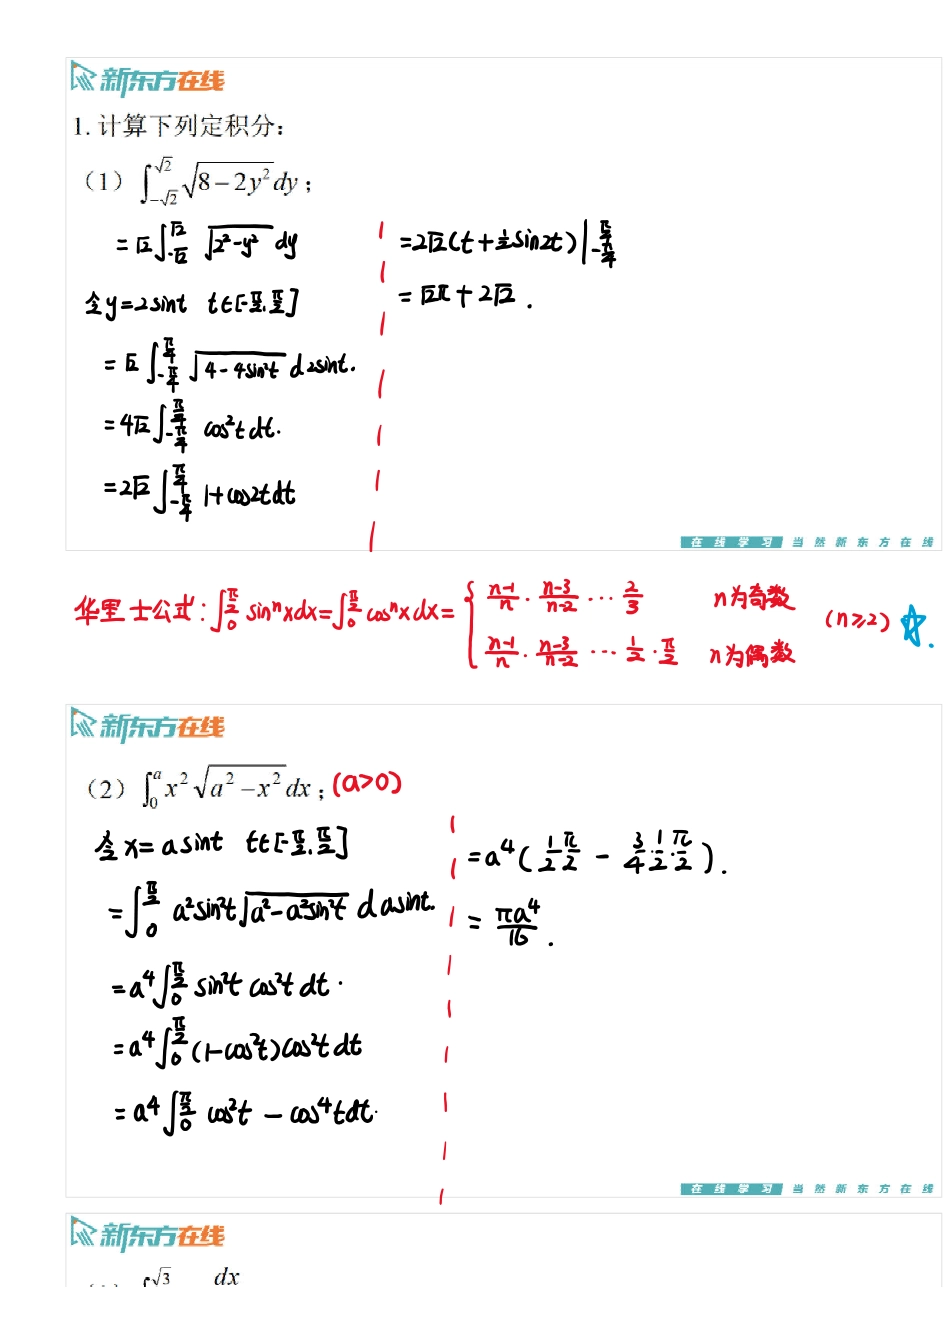 新东方在线
1. 计算下列定积分:
(1) ∫_{-√2}^{√2} √(8-2y²) dy;
= √2 ∫_{-√2}^{√2} √(2²-y²) dy
令 y=2sint t∈[-π/2, π/2]
= √2 ∫_{-π/4}^{π/4} √(4-4sin²t) d2sint.
= 4√2 ∫_{-π/4}^{π/4} cos²t dt.
= 2√2 ∫_{-π/4}^{π/4} 1+cos2t dt
= 2√2 (t + 1/2 sin2t) |_{-π/4}^{π/4}
= √2π + 2√2.
在线学习 当然新东方在线
华里士公式: ∫_0^{π/2} sinⁿxdx = ∫_0^{π/2} cosⁿxdx = { (n-1)/n · (n-3)/(n-2) ··· 2/3 n为奇数
(n-1)/n · (n-3)/(n-2) ··· 1/2 · π/2 n为偶数
(n≥2)
新东方在线
(2) ∫_0^a x² √(a²-x²) dx; (a>0)
令 x=asint t∈[-π/2, π/2]
= ∫_0^{π/2} a²sin²t √(a²-a²sin²t) d asint.
= a⁴ ∫_0^{π/2} sin²t cos²t dt.
= a⁴ ∫_0^{π/2} (1-cos²t)cos²t dt
= a⁴ ∫_0^{π/2} cos²t - cos⁴t dt.
= a⁴ (1/2 π/2 - 3/4·1/2·π/2).
= πa⁴/16.
在线学习 当然新东方在线
新东方在线
√3 dx